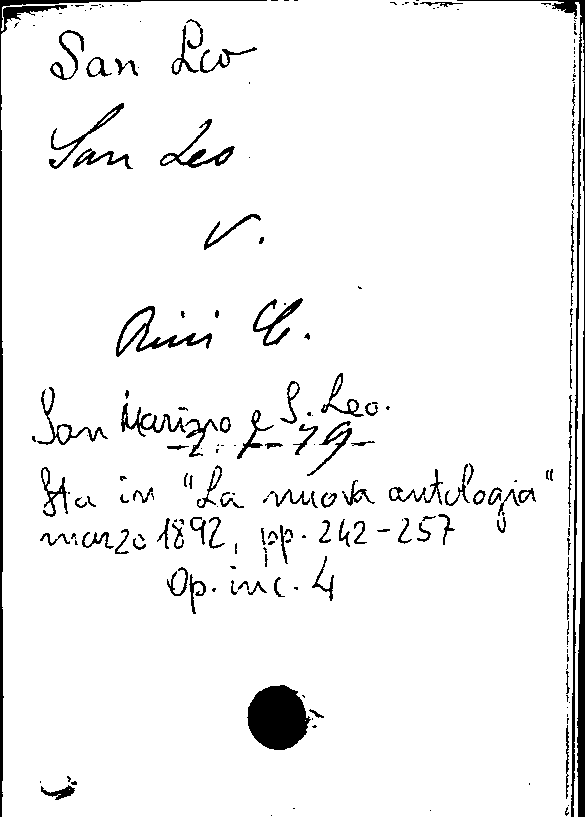 San Leo
San Leo
v.
Ricci C.
San Marino e S. Leo.
Sta in "La nuova antologia"
marzo 1892, pp. 242-257
Op. inc. 4